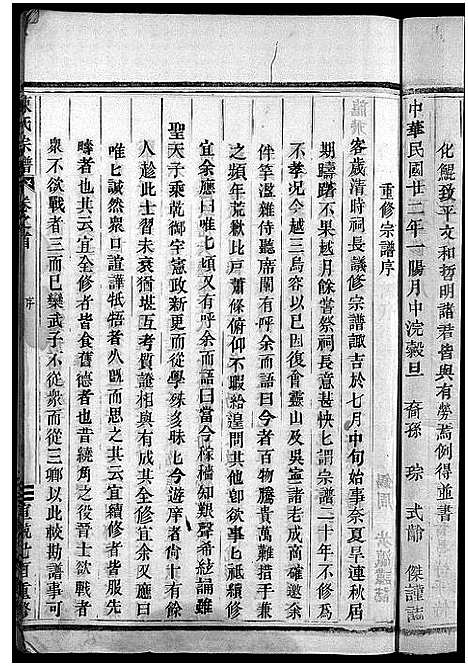 化態致平文和哲明諸君皆與有勞焉例得並書
中華民國廿二年一陽月中浣穀旦　裔孫　琮　式　傑謹誌
重修宗譜序
客歲清時祠長議修宗譜諏吉於七月中旬始事奈夏旱連秋居
期躊躇不果越月餘嘗祭祠長意甚怏乜謂宗譜二十年不修為
不孝況今越三烏容以已因復會靈山及吳寗諸老成商確邀余
伴竽濫雜侍聽席闌有呼余而語曰今者百物騰貴萬難措手兼
之頻年荒歉比戶蕭條俯仰不暇給湟問其他乜祗續修
宜余應曰唯乜頃又有呼余而語曰當今稼穡知艱聲希絃誦雖
聖天子乘乾御宇憲政新更而從學殊多昧乜今遊庠者尚十有餘
人趁此士習未衰猶堪互考質證相與有成其云全修宜余又曰
唯乜誠然衆口諠譁牴牾者久既而思之其云宜續修者皆服先
疇者也其云宜全修者皆食舊德者也昔繞角之役晉士欲戰者
衆不欲戰者三而已欒武子不從衆而從三卿以此較勘譜事可
陳氏宗譜　卷之首　序